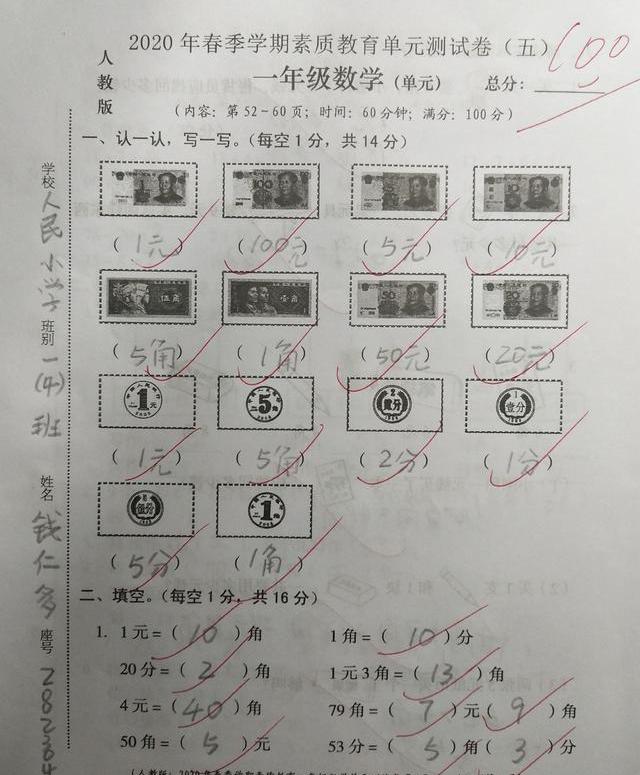 2020年春季学期素质教育单元测试卷（五）
人教版
一年级数学（单元） 总分：100
（内容：第52~60页；时间：60分钟；满分：100分）
一、认一认，写一写。（每空1分，共14分）
（1元） （100元） （5元） （10元）
伍角 壹角 50 20
（5角） （1角） （50元） （20元）
1元 5角 2 贰分 1 壹分
（1元） （5角） （2分） （1分）
伍分 1
（5分） （1角）
二、填空。（每空1分，共16分）
1. 1元=（10）角 1角=（10）分
20分=（2）角 1元3角=（13）角
4元=（40）角 79角=（7）元（9）角
50角=（5）元 53分=（5）角（3）分
学校 人民小学 班别 一(4)班 姓名 钱仁多 座号